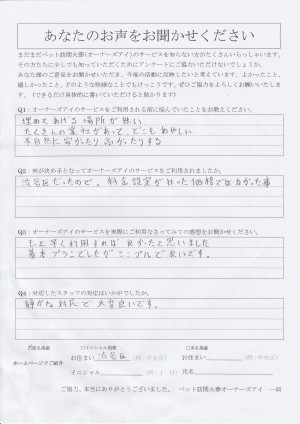 あなたのお声をお聞かせください
まだまだペット訪問火葬(オーナーズアイ)のサービスを知らない方がたくさんいらっしゃいます。
その方たちに少しでも知っていただくためにアンケートにご協力いただけないでしょうか。
あなた様のご意見をお聞かせいただき、今後の活動に反映したいと考えています。よかったこと、
嬉しかったこと、どのような些細なことでもけっこうです。ぜひご協力をよろしくお願いいたします。
(できるだけ具体的に書いていただけると助かります)
Q1:オーナーズアイのサービスをご利用される前に悩んでいたことをお教えください。
埋めてあげる場所が無い
たくさんの会社があって、どこもあやしい
不自然に安かったり高かったりする
Q2:何が決め手となってオーナーズアイのサービスをご利用されましたか。
渋谷区だったので、料金設定が 価格ではなかった事
Q3:オーナーズアイのサービスを実際にご利用なさってみての感想をお聞かせください。
もっと早く利用すれば良かったと思いました
基本プランでしたがシンプルで良いです。
Q4:対応したスタッフの対応はいかがでしたか。
静かな対応で大変良いです。
イニシャル掲載
実名掲載
お住まい 渋谷区 (例:中央区)
お住まい (例:中央区)
ホームページでご紹介
イニシャル (例:J H)
氏名
ご協力、本当にありがとうございました。 ペット訪問火葬オーナーズアイ 一同